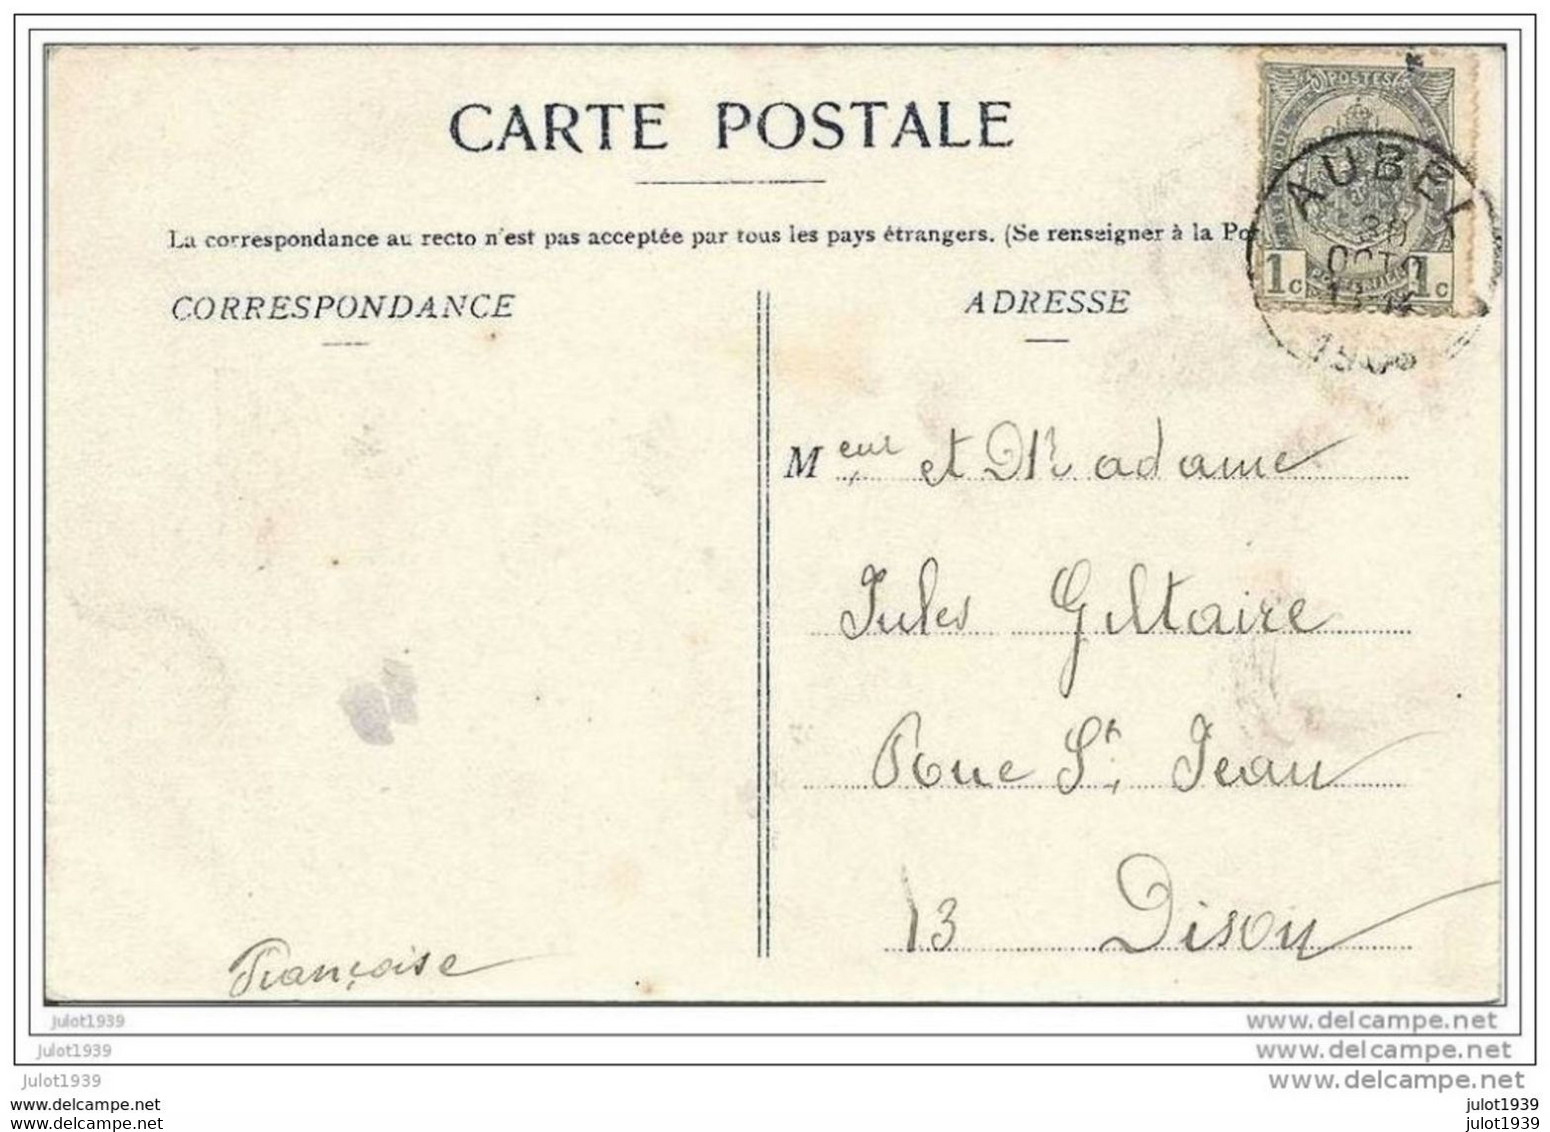 CARTE POSTALE
La correspondance au recto n'est pas acceptée par tous les pays étrangers. (Se renseigner à la
CORRESPONDANCE
ADRESSE
POSTES
1c 1c
AUBEL
30
OCTO
Meur et Madame
Jules Giltaire
Rue St. Jean
13 Dison
Françoise
julot1939
www.delcampe.net
julot1939
www.delcampe.net
julot1939
www.delcampe.net
www.delcampe.net
julot1939
www.delcampe.net
julot1939